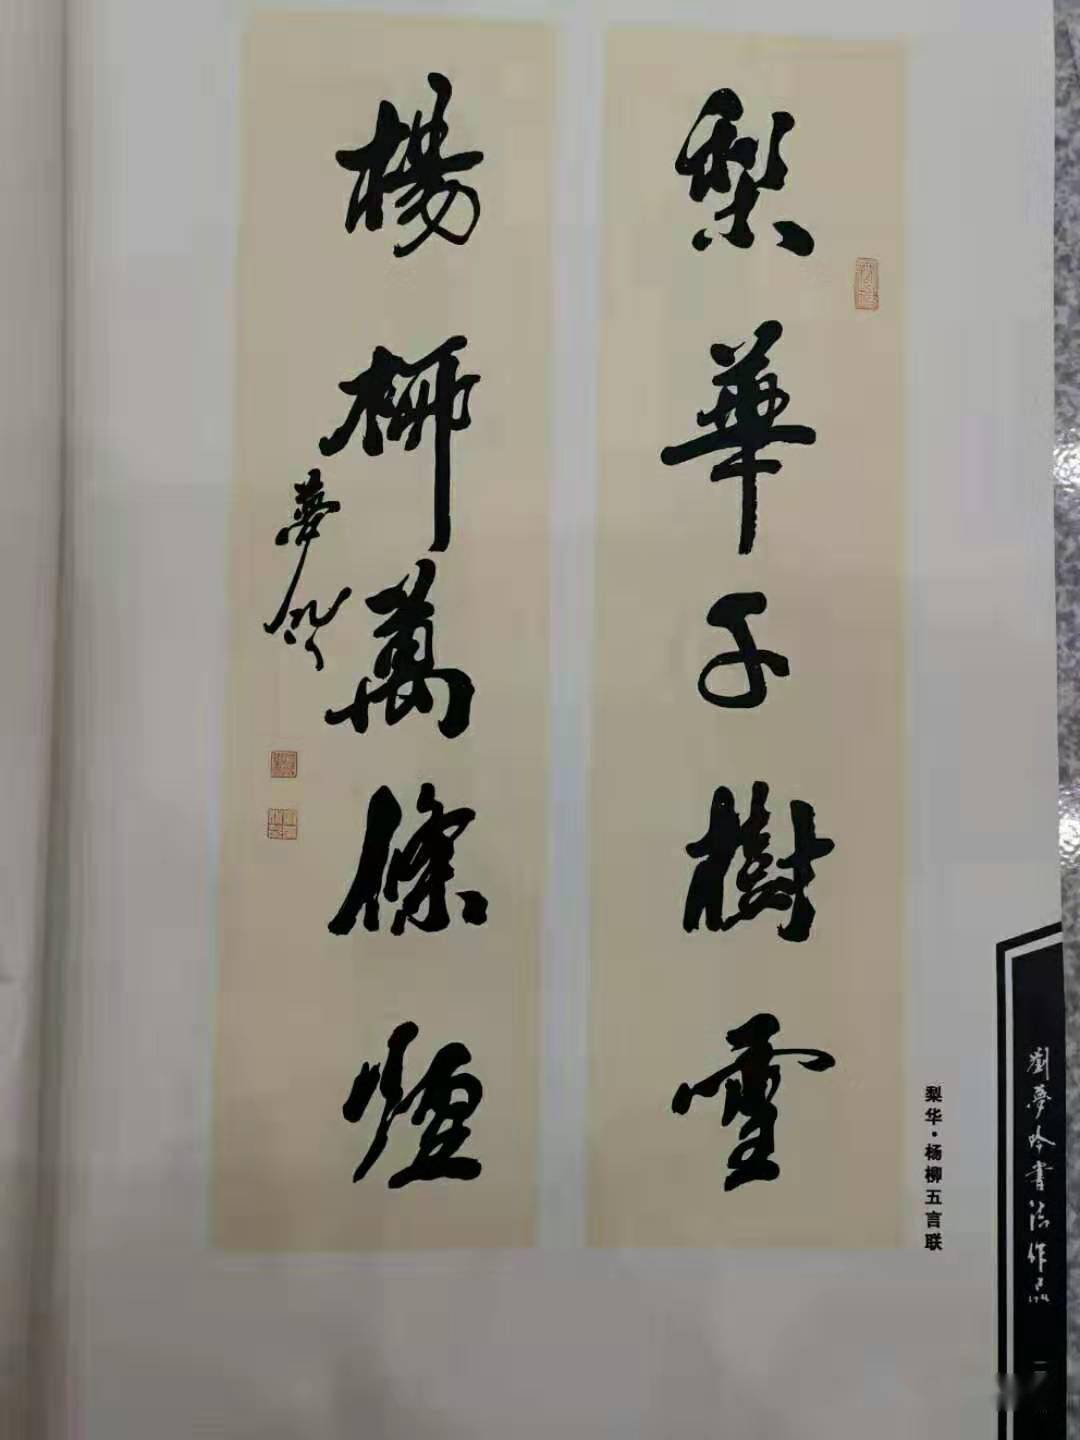 梨華千樹雪
楊柳萬條煙
夢吟
梨华·杨柳五言联
劉夢吟書法作品